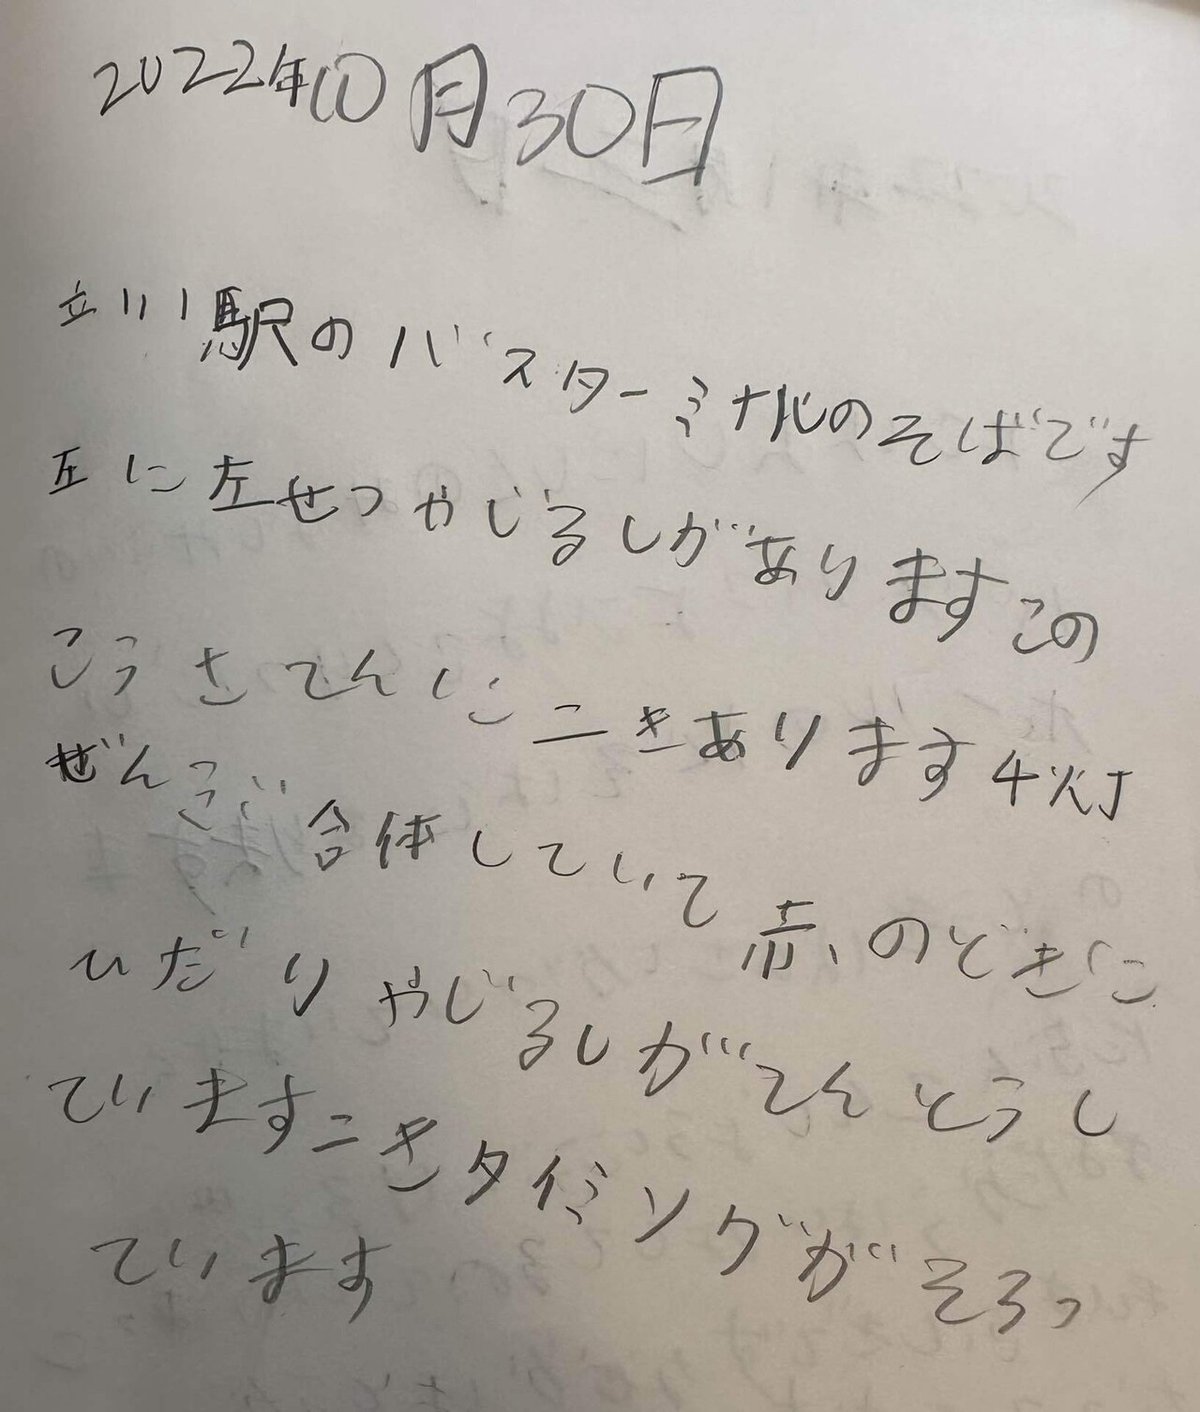 2022年10月30日
立川駅のバスターミナルのそばです
左に左せつやじるしがありますこの
こうさてんに二きあります4灯
ぜんご合体していて赤のどきに
ひだりやじるしがてんとうし
ていますニきタイミングがそろっ
ています